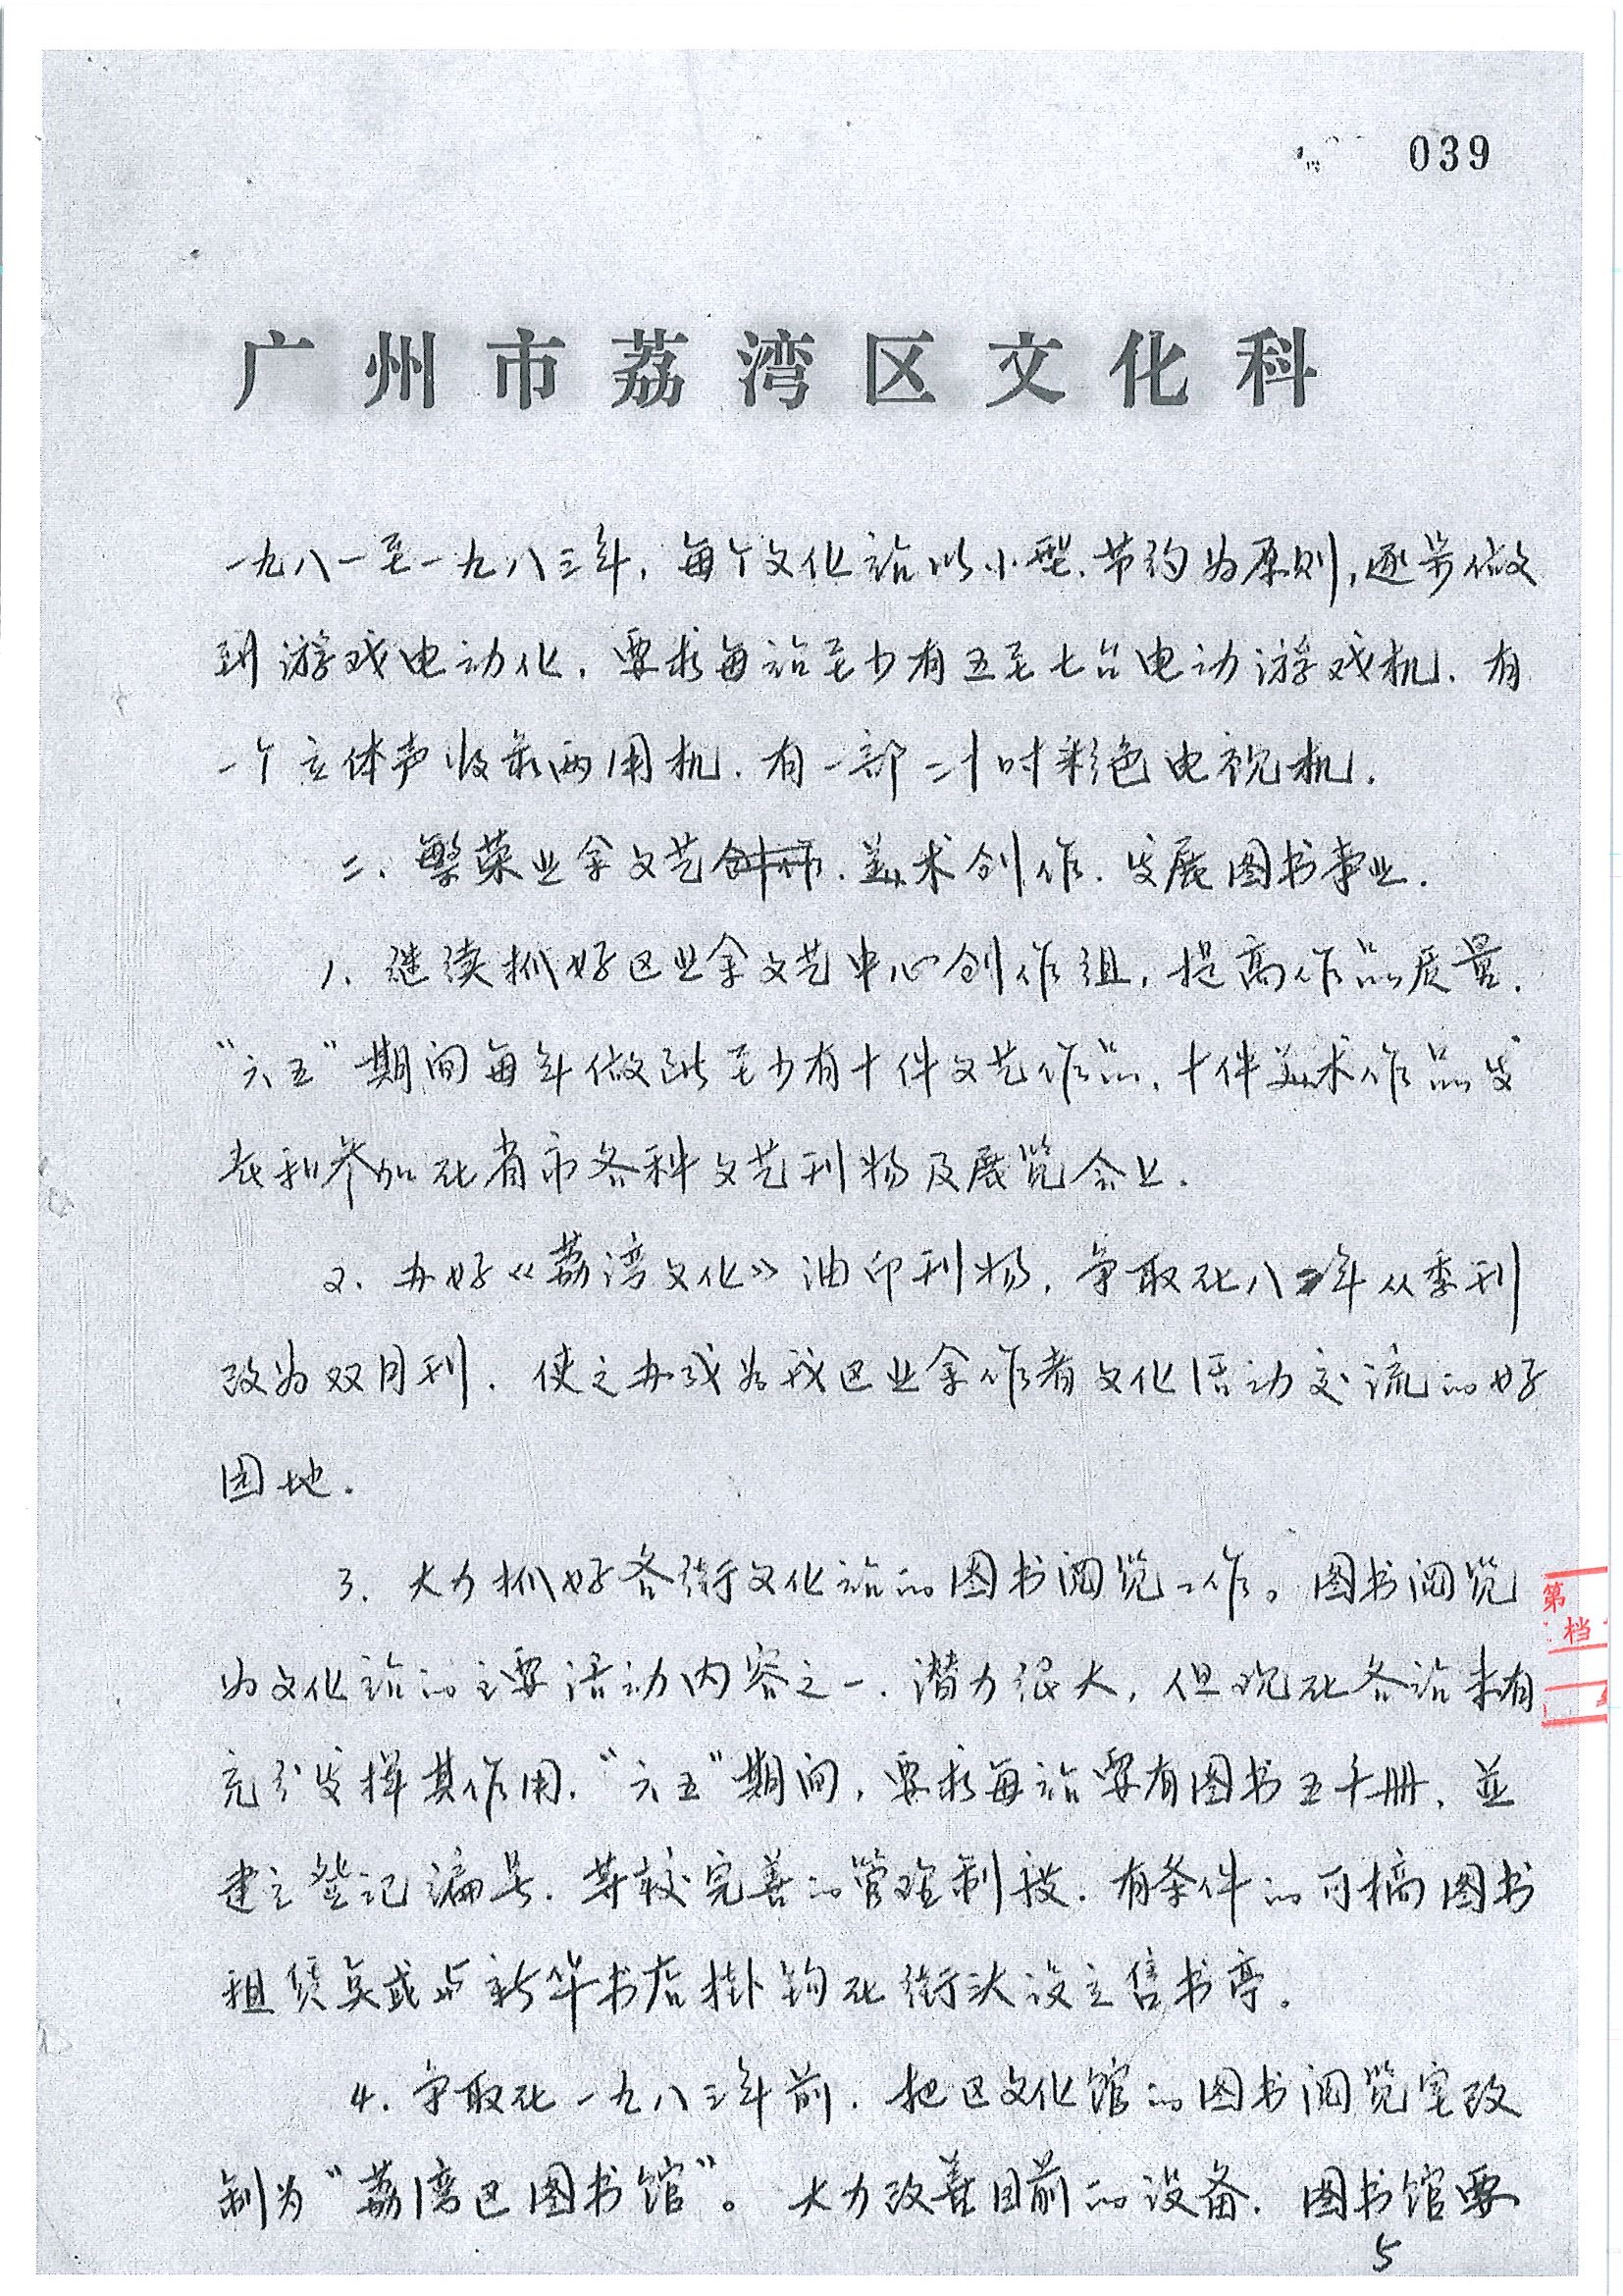 039
广州市荔湾区文化科
一九八一至一九八三年，每个文化站以小型、节约为原则，逐步做
到游戏电动化，要求每站至少有五至七台电动游戏机，有
一个立体声收录两用机，有一部二十吋彩色电视机．
二、繁荣业余文艺、美术创作、发展图书事业．
1、继续抓好区业余文艺中心创作组，提高作品质量．
“六五”期间每年做到至少有十件文艺作品，十件美术作品发
表和参加在省市各种文艺刊物及展览会上．
2、办好《荔湾文化》油印刊物，争取在八二年从季刊
改为双月刊．使之办成为我区业余作者文化活动交流的好
园地．
3、大力抓好各街文化站的图书阅览工作。图书阅览
为文化站的主要活动内容之一．潜力很大，但现在各站未有
充分发挥其作用．“六五”期间，要求每站要有图书五千册，並
建立登记编号．等较完善的管理制度．有条件的可搞图书
租赁点或与新华书店掛钩在街头设立售书亭．
4．争取在一九八三年前．把区文化馆的图书阅览室改
制为“荔湾区图书馆”。大力改善目前的设备．图书馆要
5
第
档